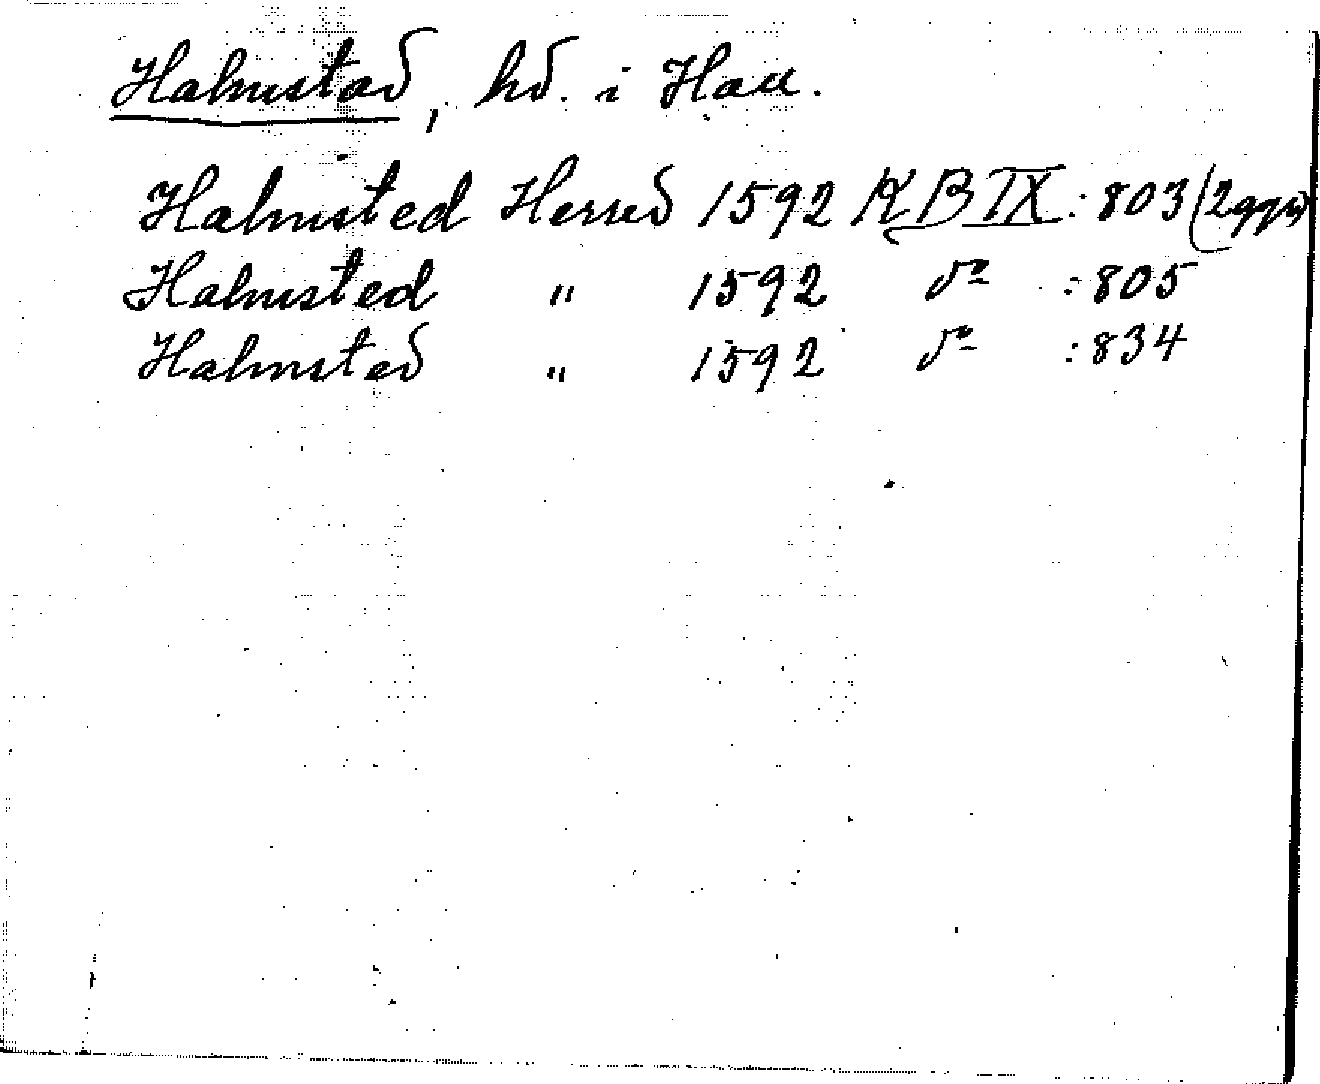 Halmstad, hd. i Hall.
Halmsted Herred 1592 KB IX : 803 (2 ggr)
Halmsted " 1592 do : 805
Halmsted " 1592 do : 834